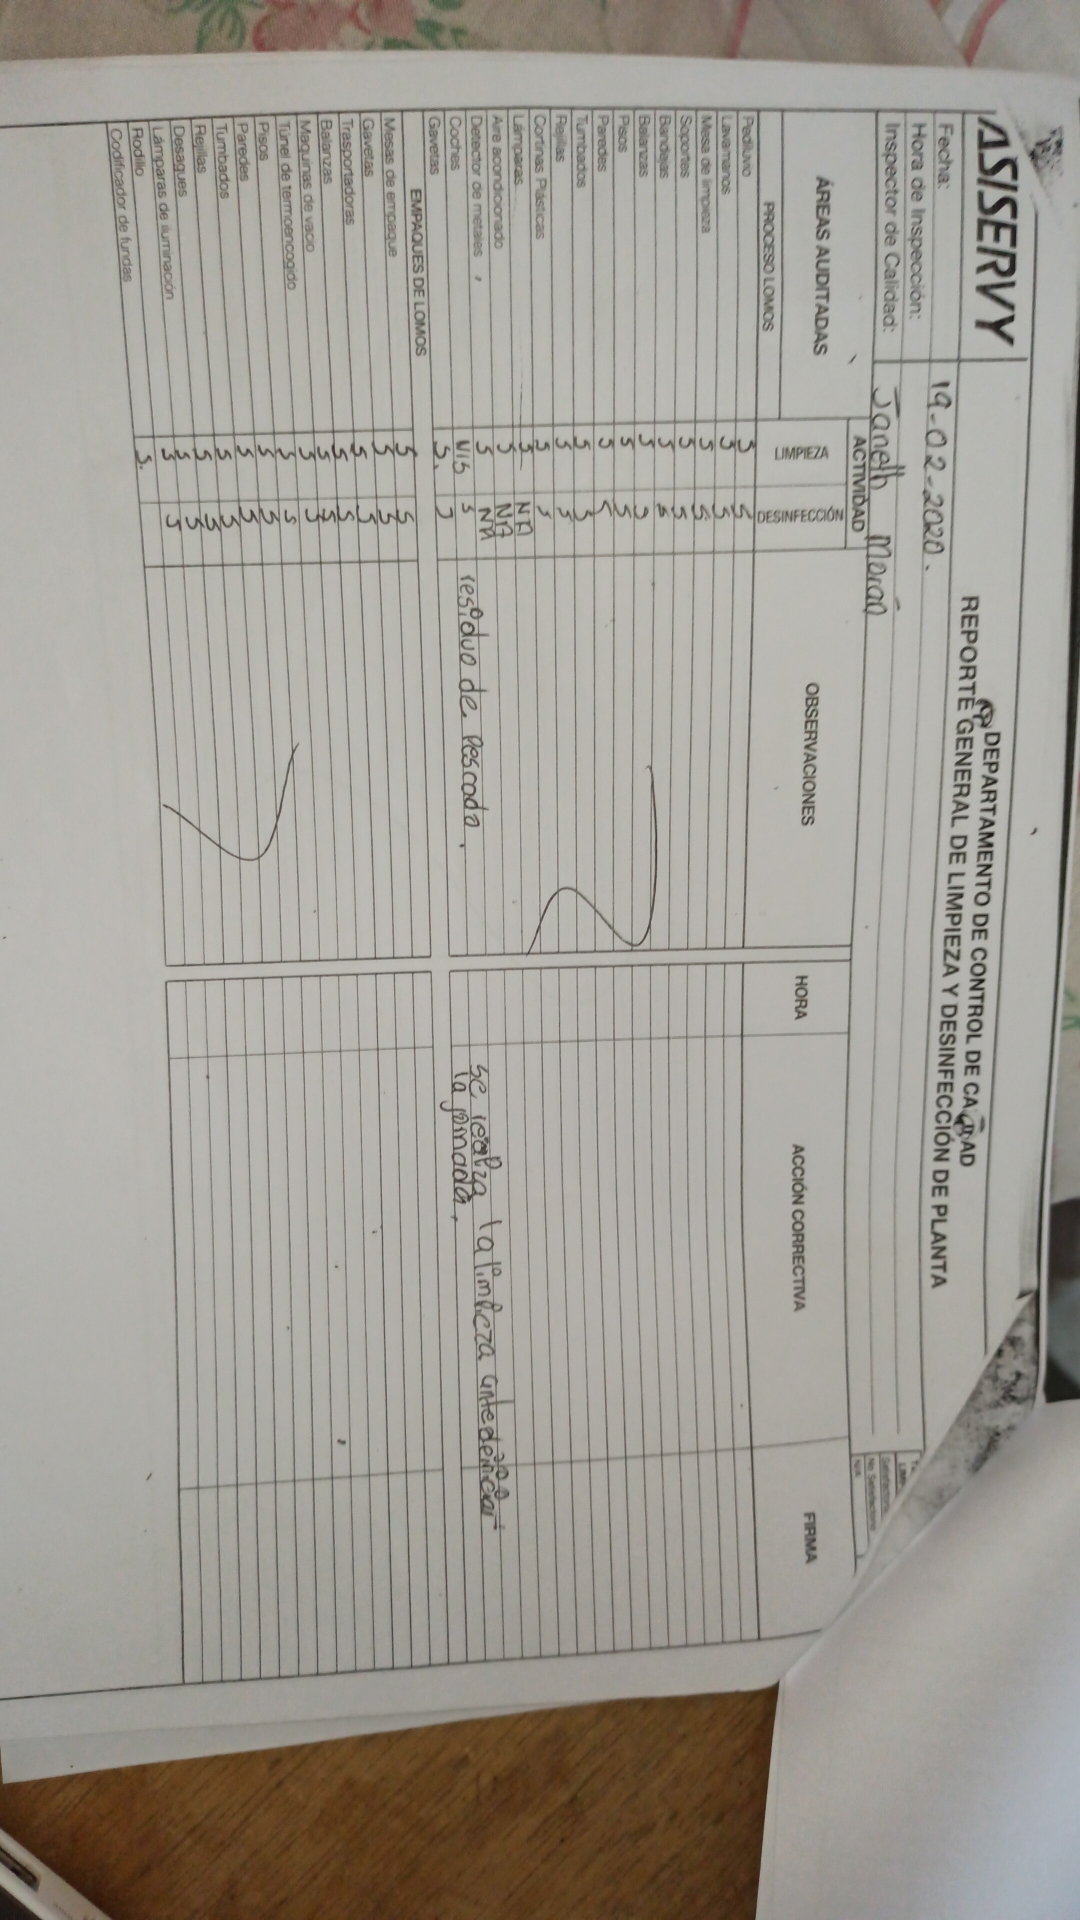 ASISERVY
DEPARTAMENTO DE CONTROL DE CALIDAD
REPORTE GENERAL DE LIMPIEZA Y DESINFECCIÓN DE PLANTA
Fecha: 19-02-2020.
Hora de Inspección:
Inspector de Calidad: Janeth Morán
Satisfactorio
No Satisfactorio
N/A
ÁREAS AUDITADAS ACTIVIDAD OBSERVACIONES HORA ACCIÓN CORRECTIVA FIRMA
PROCESO LOMOS LIMPIEZA DESINFECCIÓN
Pediluvio S S
Lavamanos S S
Mesa de limpieza S S
Soportes S S
Bandejas S S
Balanzas S S
Pisos S S
Paredes S S
Tumbados S S
Rejillas S S
Cortinas Plásticas S S
Lámparas S NA
Aire acondicionado S NA
Detector de metales S NA
Coches N/S S residuo de pescado. se realiza la limpieza antes de iniciar
la jornada.
Gavetas S. S
EMPAQUES DE LOMOS
Mesas de empaque S S
Gavetas S S
Trasportadoras S S
Balanzas S S
Maquinas de vacio S S
Túnel de termoencogido S S
Pisos S S
Paredes S S
Tumbados S S
Rejillas S S
Desagues S S
Lámparas de iluminación S S
Rodillo S.
Codificador de fundas